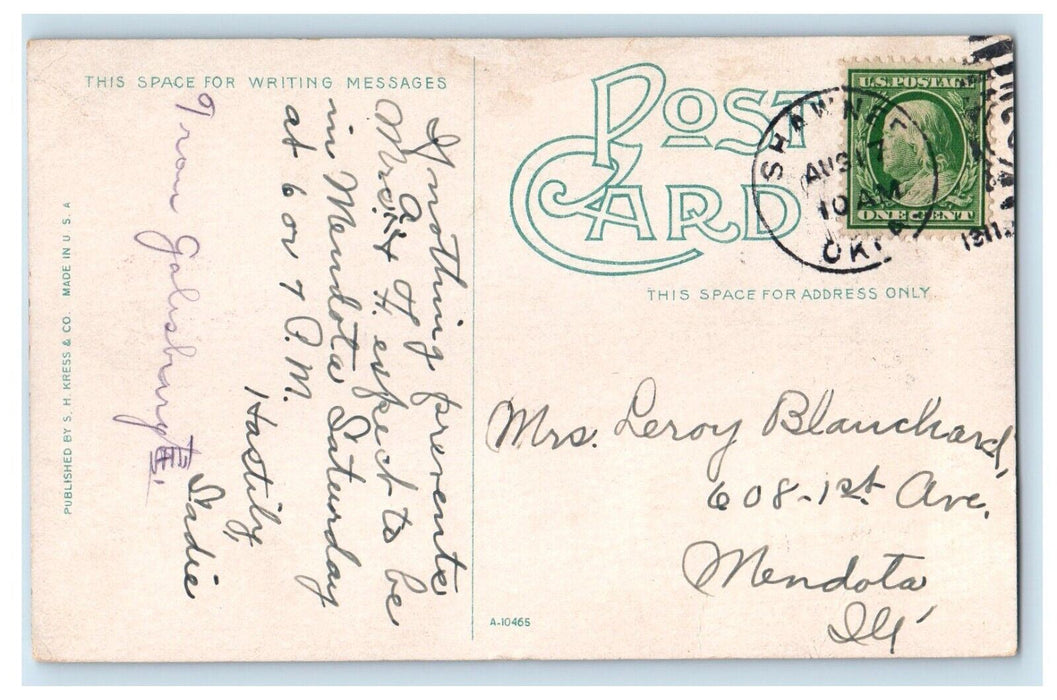 THIS SPACE FOR WRITING MESSAGES
If nothing prevents
Mr. & H. expect to be
in Mendota Saturday
at 6 or 7 P.M.
Hastily,
Sadie
From Galisburg
PUBLISHED BY S. H. KRESS & CO. MADE IN U. S. A
POST
CARD
U.S. POSTAGE
ONE CENT
SHAWNEE
AUG 17
10 AM
OKLA
1911
THIS SPACE FOR ADDRESS ONLY
Mrs. Leroy Blanchard,
608-1st Ave.
Mendota
Ill
A-10465